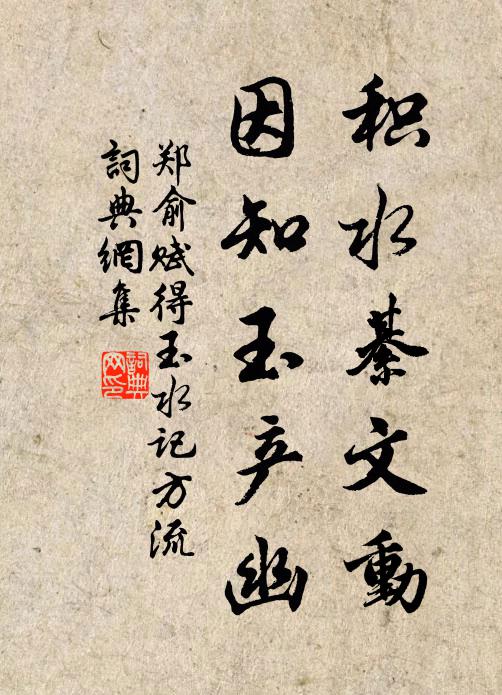 积水綦文動
因知玉产幽
郑俞赋得玉水记方流
詞典網集
詞典网印